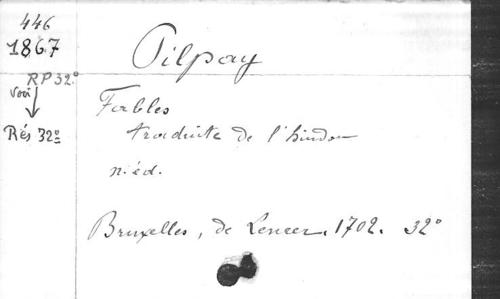 446
1867
Pilpay
RP 32°
voir
Rés 32°
Fables
traduite de l'hindou
n. éd.
Bruxelles, de Leneer, 1702. 32°